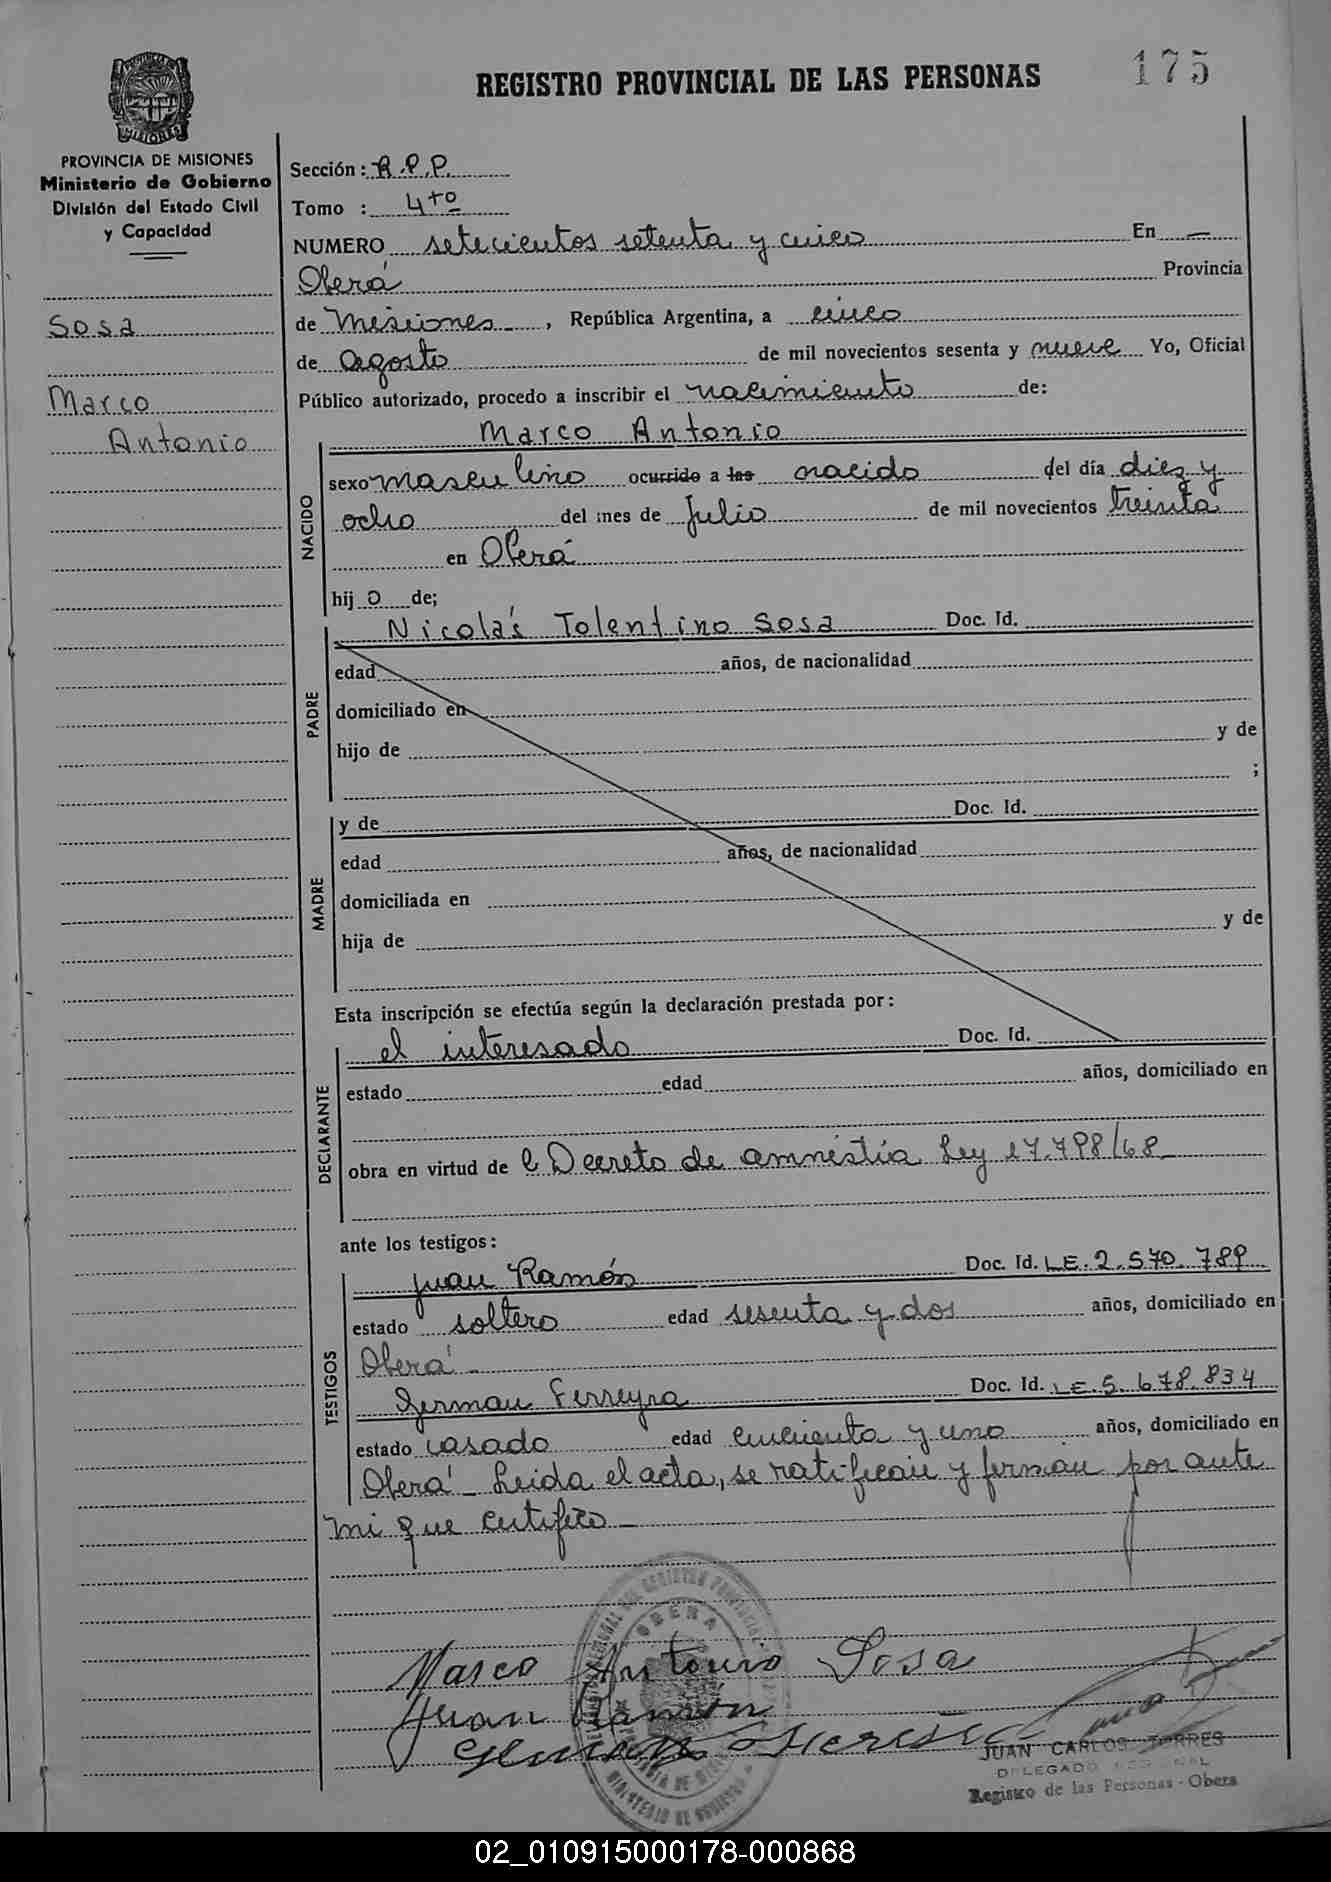 175
REGISTRO PROVINCIAL DE LAS PERSONAS
MISIONES
PROVINCIA DE MISIONES
Ministerio de Gobierno
División del Estado Civil
y Capacidad
Sosa
Marco
Antonio
Sección: R.P.P.
Tomo : 4to
NUMERO setecientos setenta y cinco En —
Oberá Provincia
de Misiones, República Argentina, a cinco
de agosto de mil novecientos sesenta y nueve Yo, Oficial
Público autorizado, procedo a inscribir el nacimiento de:
NACIDO
Marco Antonio
sexo masculino ocurrido a las nacido del día diez y
ocho del mes de Julio de mil novecientos treinta
en Oberá
hijo de;
PADRE
Nicolás Tolentino Sosa Doc. Id.
edad años, de nacionalidad
domiciliado en
hijo de y de
;
MADRE
y de Doc. Id.
edad años, de nacionalidad
domiciliada en
hija de y de
Esta inscripción se efectúa según la declaración prestada por:
DECLARANTE
el interesado Doc. Id.
estado edad años, domiciliado en
obra en virtud de l Decreto de amnistia Ley 17.798/68
ante los testigos:
TESTIGOS
Juan Ramón Doc. Id. LE. 2.570.789
estado soltero edad sesenta y dos años, domiciliado en
Oberá
German Ferreyra Doc. Id. LE 5.678.834
estado casado edad cincuenta y uno años, domiciliado en
Oberá - Leida el acta, se ratifican y firman por ante
mi que certifico
OBERA
Marco Antonio Sosa
Juan Ramón
JUAN CARLOS TORRES
DELEGADO REGIONAL
Registro de las Personas - Obera
02_010915000178-000868